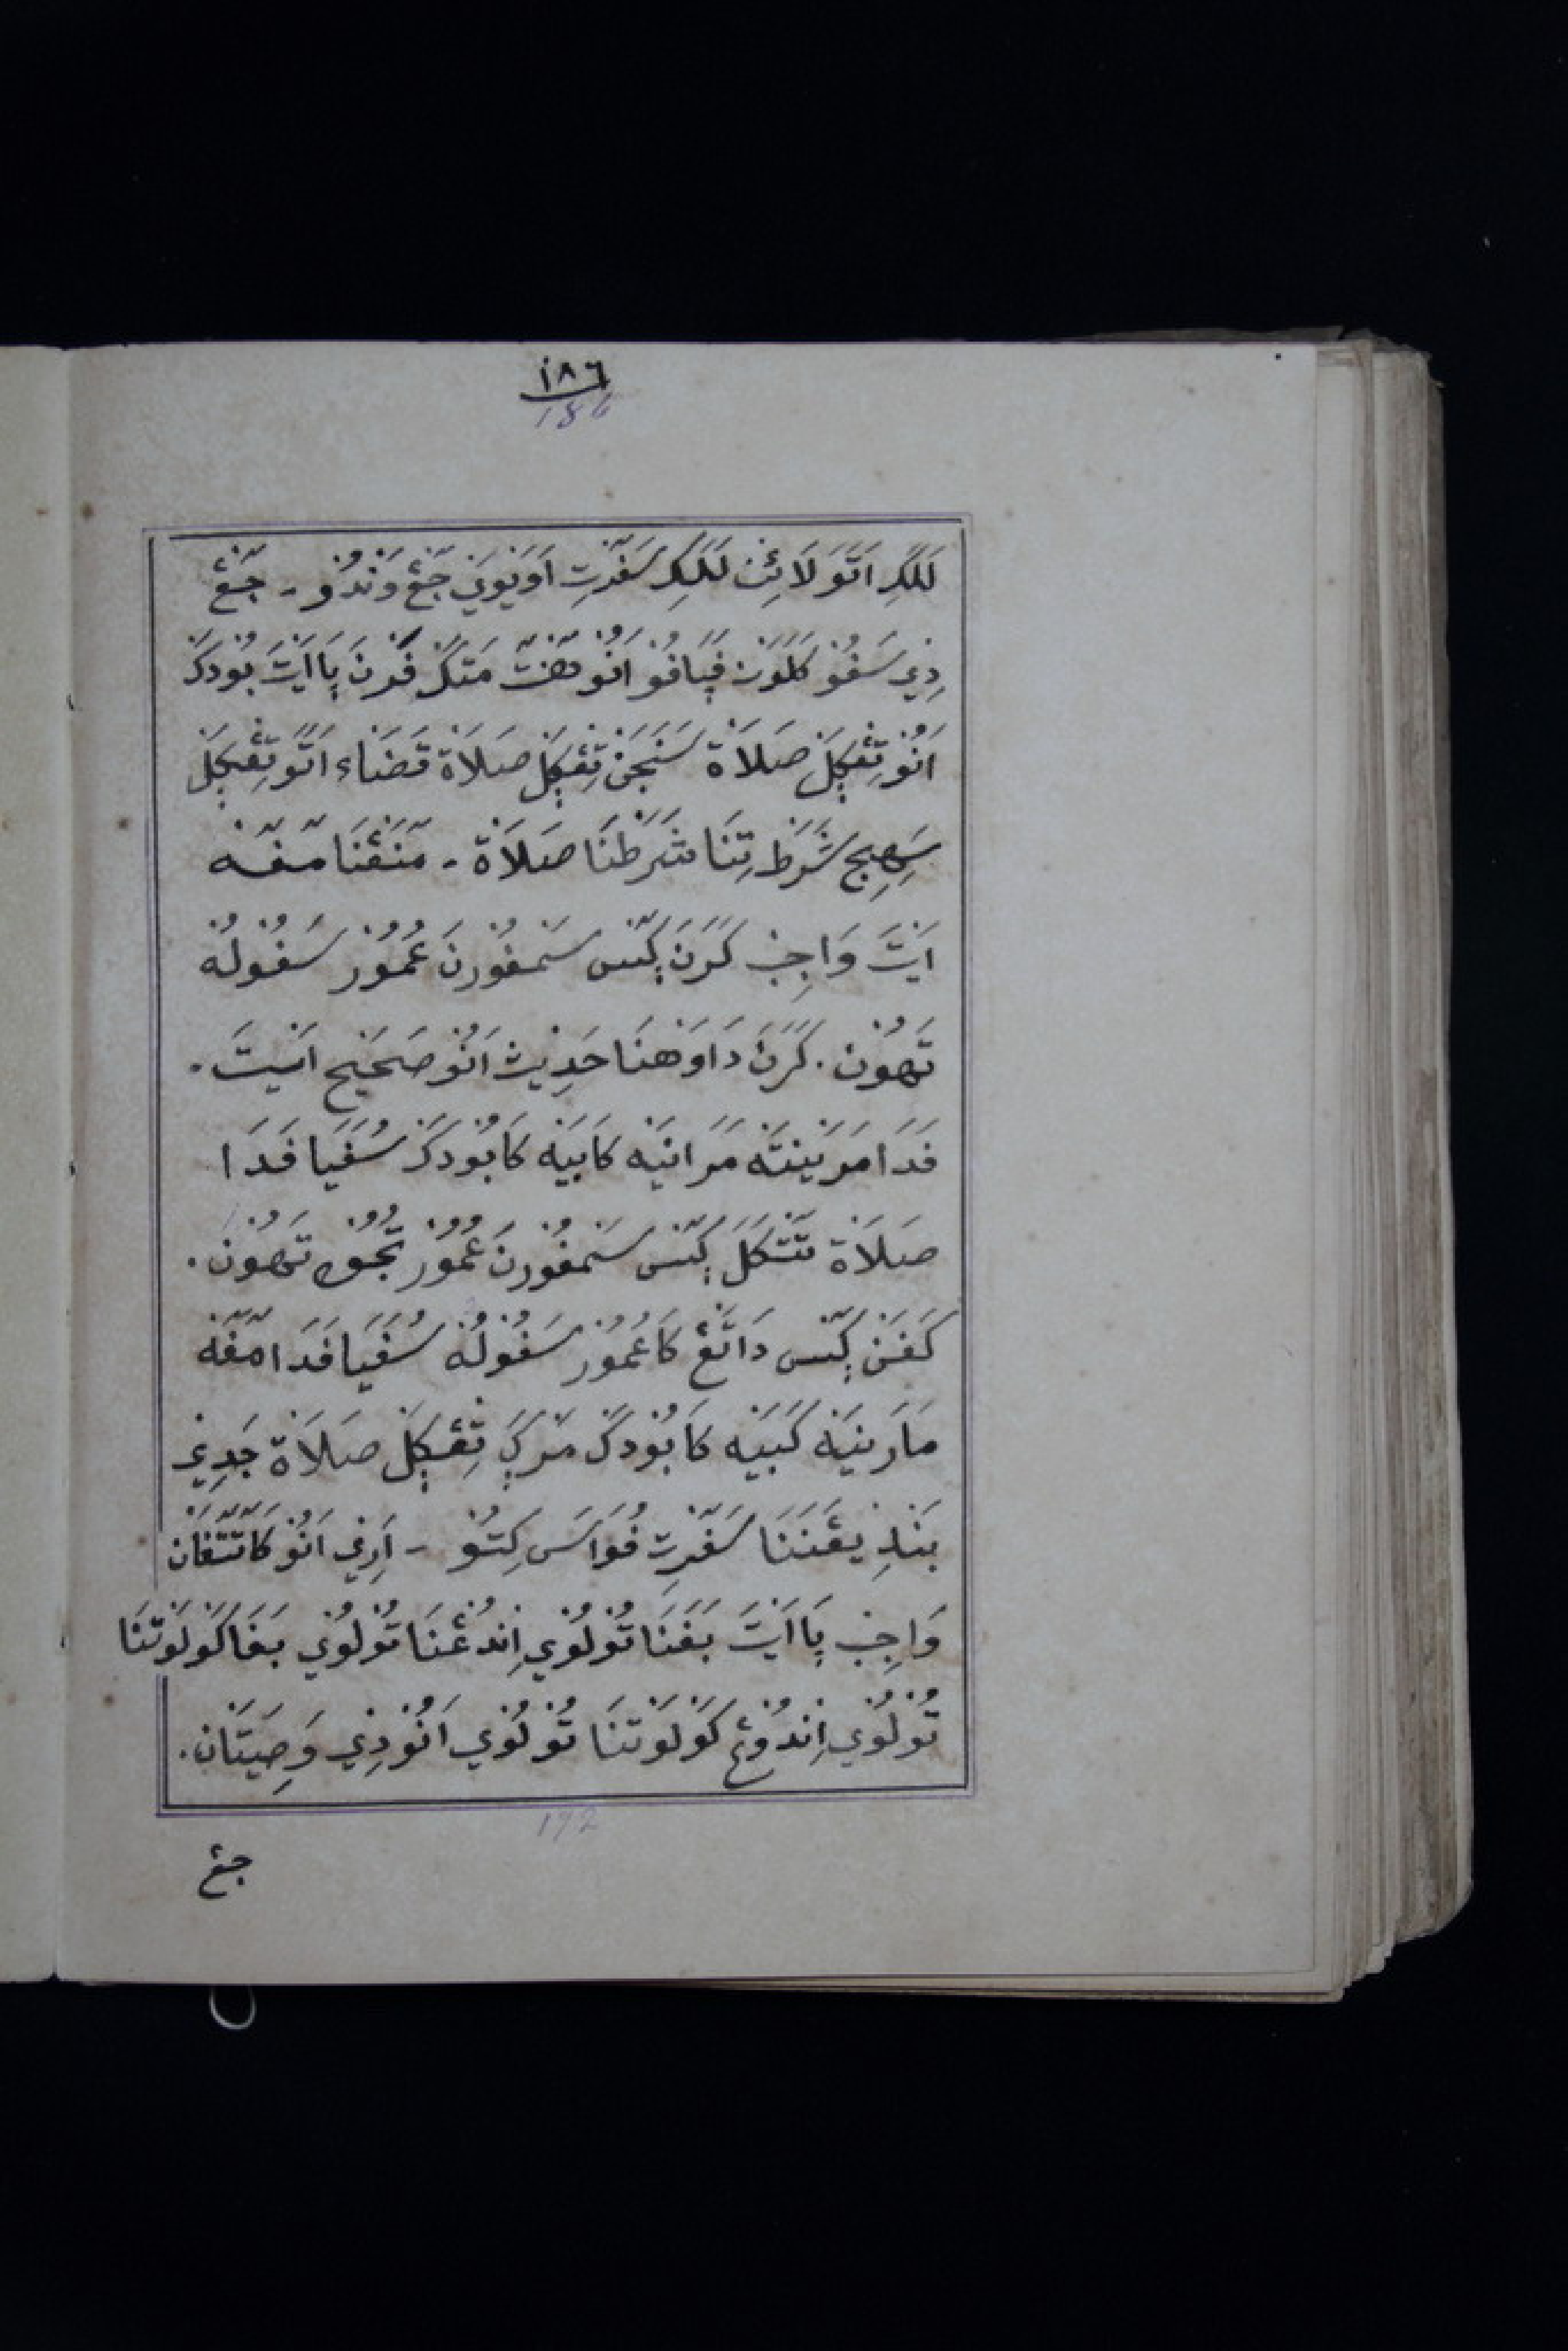 ١٨٦
186
لَلَكِ اَتَّوَ لَائِن لَلَكِ سَفَرْتِ اَوَيُوَنِ جَڠْ وَنْدُو - جَڠْ
دِي سَفُو كَلَوَن فِيَافُو اَنُو مَتَكَ فَرْنَ بِااَيْتَ بُودَكَ
اَنُو تِڠْكِلَ صَلَاة سَنْجَن تِڠْكِلَ صَلَاة قَضَاء اَتَّوَ تِڠْكِلَ
سَهِبِج شَرَط تِنَا شَرَطْنَا صَلَاة - مَنْڤْنَا مَڤَه
اَيْتَ وَاجِب كَرَنَ كِتَس سَمْفُورْنَ عُمُور سَفُولُه
تَهُون . كَرَنَ دَاوَهْنَا حَدِيث اَنُو صَحِيح اَيْتَ .
فَدَا مَرَيْنْتَه مَرَانِيَه كَابَيَه كَا بُودَكَ سُفَيَا فَدَا
صَلَاة تَتْكَلَ كِتَس سَمْفُورْنَ عُمُور تُجُوه تَهُون .
كَفَن كِتَس دَاتَڠْ كَا عُمُور سَفُولُه سُفَيَا فَدَا مَڤَه
مَارَنِيَه كَبَيَه كَا بُودَكَ مَرَكِ تِڠْكِلَ صَلَاة جَدِي
بَنَدِ يڠْنَنَا سَفَرْتِ فُوَاسَ كِتُو - اَرِي اَنُو كَاتَتْفَان
وَاجِب بِااَيْتَ بَفَنَا تُولُوي اِنْدُڠْنَا تُولُوي بَفَا كَوَلَوَتْنَا
تُولُوي اِنْدُوڠْ كَوَلَوَتْنَا تُولُوي اَنُو دِي وَصِيَتَان .
192
جڠ